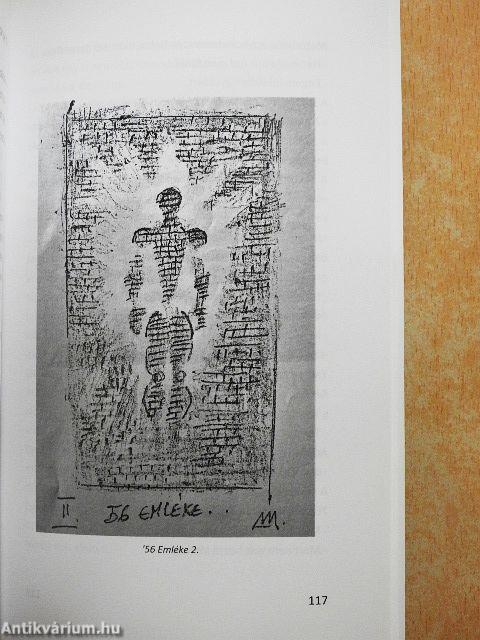 II
56 EMLÉKE..
'56 Emléke 2.
117
Antikvárium.hu